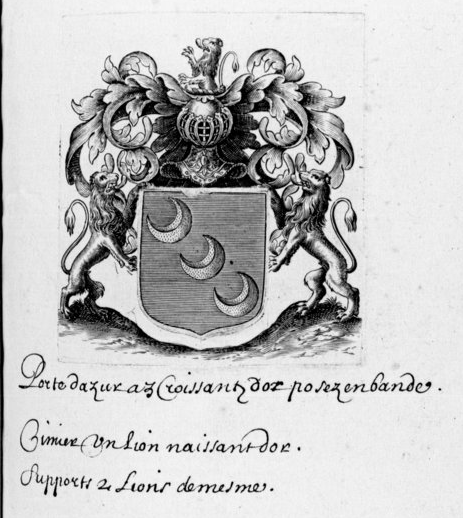 Porte dazur a 3 Croissantz dor posez en bande.
Cimier Un Lion naissant dor.
Supports 2 Lions de mesme.